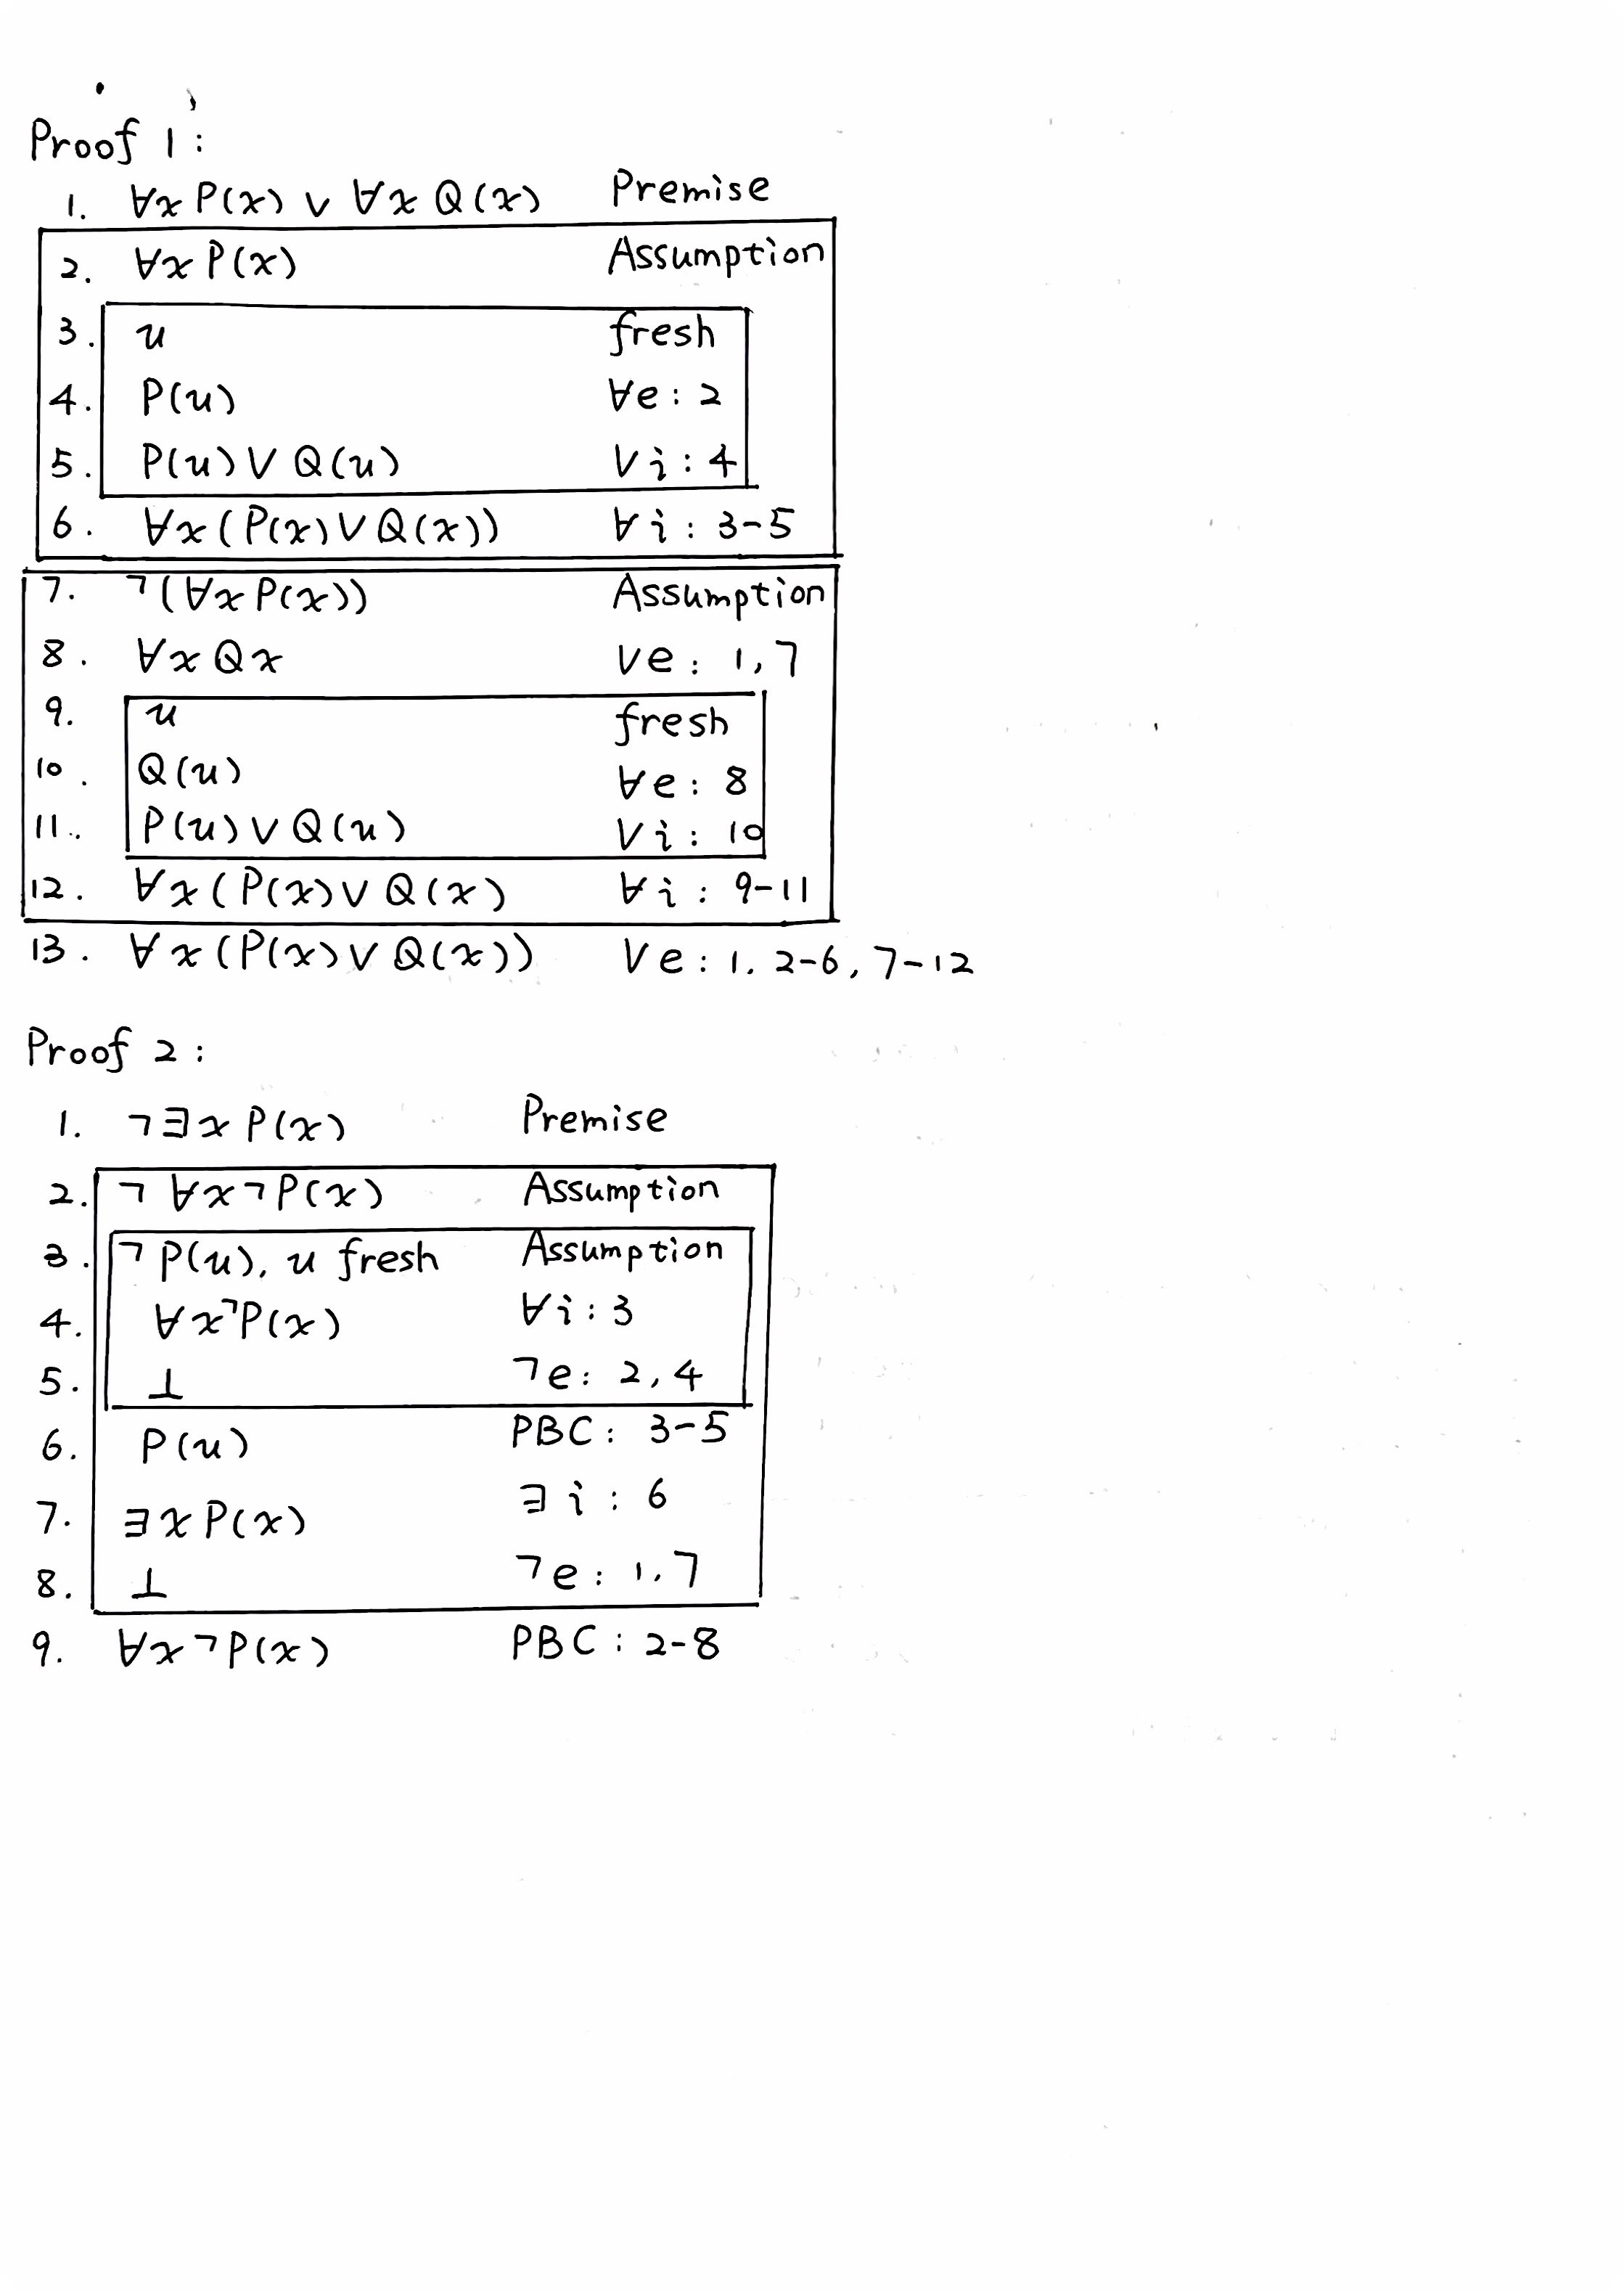 Proof 1:
1. ∀x P(x) ∨ ∀x Q(x) Premise
2. ∀x P(x) Assumption
3. u fresh
4. P(u) ∀e: 2
5. P(u) ∨ Q(u) ∨i: 4
6. ∀x(P(x) ∨ Q(x)) ∀i: 3-5
7. ¬(∀x P(x)) Assumption
8. ∀x Qx ∨e: 1,7
9. u fresh
10. Q(u) ∀e: 8
11. P(u) ∨ Q(u) ∨i: 10
12. ∀x(P(x) ∨ Q(x) ∀i: 9-11
13. ∀x(P(x) ∨ Q(x)) ∨e: 1, 2-6, 7-12
Proof 2:
1. ¬∃x P(x) Premise
2. ¬∀x¬P(x) Assumption
3. ¬P(u), u fresh Assumption
4. ∀x¬P(x) ∀i: 3
5. ⊥ ¬e: 2, 4
6. P(u) PBC: 3-5
7. ∃x P(x) ∃i: 6
8. ⊥ ¬e: 1,7
9. ∀x¬P(x) PBC: 2-8